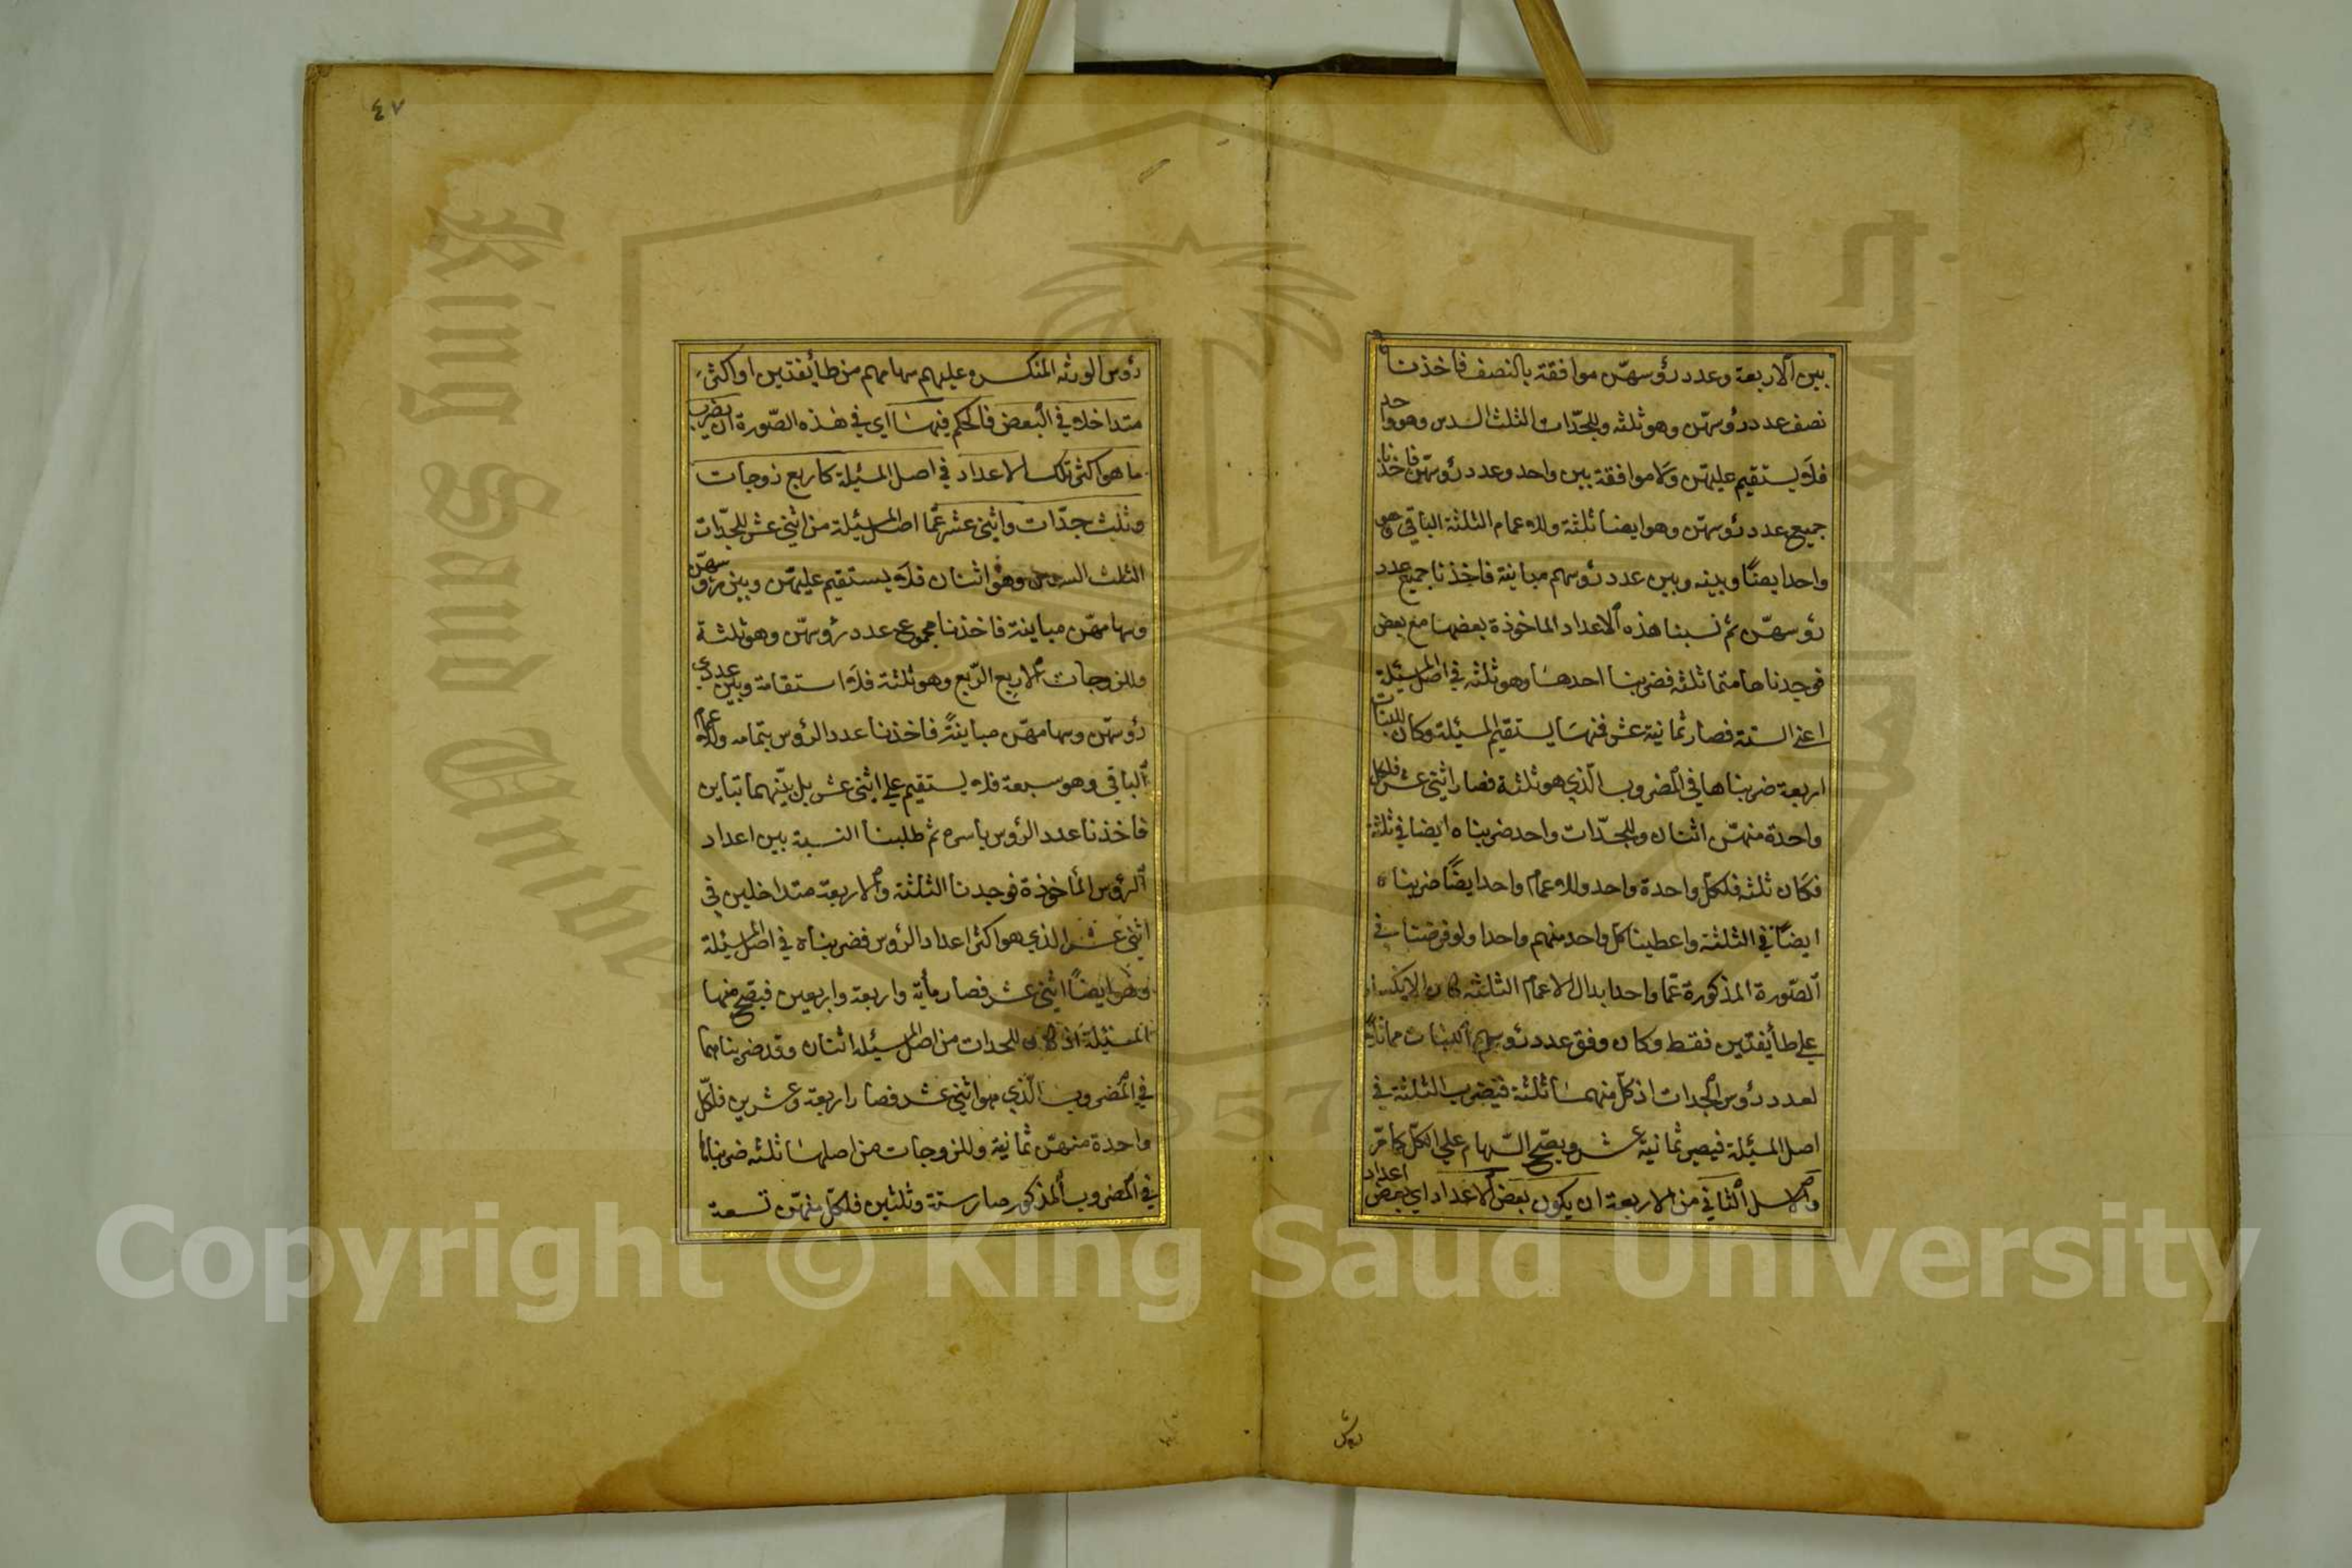 بين الاربعة وعدد رؤسهنّ موافقة بالنصف فاخذنا
نصف عدد رؤسهنّ وهو ثلثه وللجدّات الثلث السدس وهو واحد
فلا يستقيم عليهنّ ولا موافقة بين واحد وعدد رؤسهنّ فاخذنا
جميع عدد رؤسهنّ وهو ايضا ثلثة وللاعمام الثلثة الباقي
واحد ايضًا وبينه وبين عدد رؤسهم مباينة فاخذنا جميع عدد
رؤسهنّ ثم نسبنا هذه الاعداد الماخوذة بعضها مع بعض
فوجدناها متماثلثة فضربنا احدها وهو ثلثه في اصل المسئلة
اعني الستة فصار ثمانية عشر فمنها يستقيم المسئلة وكان للبنات
اربعة ضربناها في المضروب الّذي هو ثلثة فصار اثنى عشر فلكل
واحدة منهنّ اثنان وللجدّات واحد ضربناه ايضا في ثلثة
فكان ثلثه فلكل واحدة واحد وللاعمام واحد ايضًا ضربناه
ايضًا في الثلثة واعطينا كل واحد منهم واحدا ولو فرضنا في
الصّورة المذكورة عمّا واحدا بدال الاعمام الثلثه كان الانكسار
على طائفتين فقط وكان وفق عدد رؤسهم البنات مماثلاً
لعدد رؤس الجدات اذ كلّ منهما ثلثة فيضرب الثلثة في
اصل المسئلة فيصير ثمانية عشر ويصّح السّهام على الكلّ كما مرّ
والاصل الثاني من الاربعة ان يكون بعض الاعداد اي بعض اعداد
رؤس الورثه المنكسره عليهم سهامهم من طائفتين او اكثر
متداخلا في البعض فالحكم فيها اي في هذه الصّورة ان يضرب
ما هو اكثر تلك الاعداد في اصل المسئلة كاربع زوجات
وثلث جدّات واثنى عشر عمّا اصل المسئلة من اثني عشر للجدّات
الثلث السدس وهو اثنان فلا يستقيم عليهنّ وبين رؤسهنّ
وسهامهنّ مباينة فاخذنا مجموع عدد رؤسهنّ وهو ثلثة
وللزوجات الاربع الرّبع وهو ثلثة فلا استقامة وبين عددي
رؤسهنّ وسهامهنّ مباينةً فاخذنا عدد الرؤس بتمامه وللاعمام
الباقي وهو سبعة فلا يستقيم على اثنى عشر بل بينهما تباين
فاخذنا عدد الرؤس باسره ثم طلبنا النسبة بين اعداد
الرؤس المأخوذة فوجدنا الثلثة والاربعة متداخلين في
اثنى عشر الذي هو اكثر اعداد الرؤس فضربناه في اصل المسئلة
وهو ايضًا اثنى عشر فصار مأية واربعة واربعين فيصّح منها
المسئلة اذ كان للجدات من اصل المسئله اثنان وقد ضربناهما
في المضروب الّذي هو اثنى عشر فصار اربعة وعشرين فلكّل
واحدة منهنّ ثمانية وللزوجات من اصلها ثلثه ضربناها
في المضروب المذكور صار ستة وثلثين فلكّل منهنّ تسعة
٤٧
رؤس
Copyright © King Saud University
King Saud Unive
1957